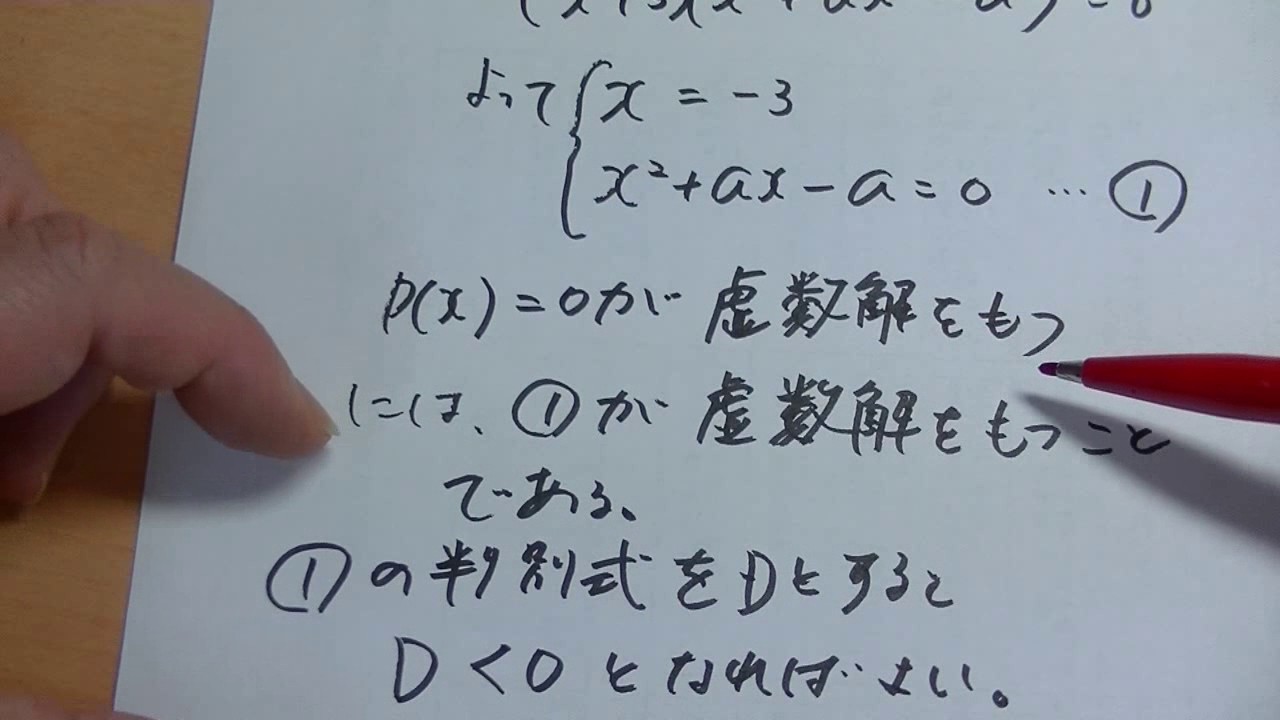 (x+3)(x²+ax-a)=0
よって{x=-3
x²+ax-a=0 … ①
P(x)=0が虚数解をもつ
には、①が虚数解をもつこと
である、
①の判別式をDとすると
D<0となればよい。